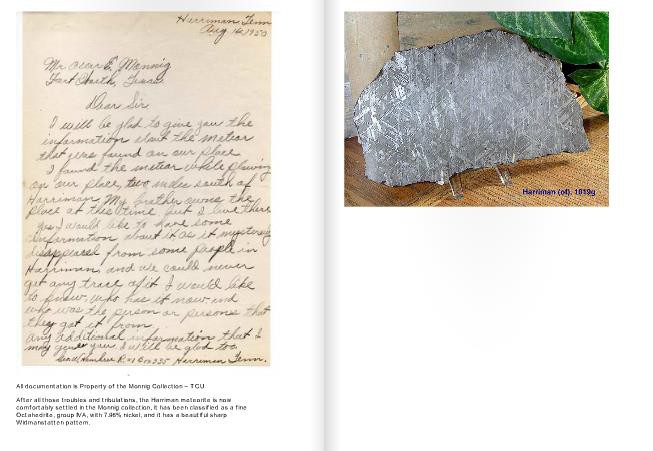 Harriman, Tenn
Aug 16 1950
Mr Oscar E. Monnig
Fort Worth, Texas
Dear Sir
I will be glad to give you the
information about the meteor
that was found on our place
I found the meteor while plowing
on our place, two miles south of
Harriman My brother owns the
place at this time but I live there
yes I would like to have some
information about it as it mysteriously
disappeared from some people in
Harriman, and we could never
get any trace of it I would like
to know who has it now and
who was the person or persons that
they got it from
any additional information that I
may give you, I will be glad to
Harriman Tenn.
All documentation is Property of the Monnig Collection – TCU
After all those troubles and tribulations, the Harriman meteorite is now
comfortably settled in the Monnig collection. It has been classified as a fine
Octahedrite, group IVA, with 7.96% nickel, and it has a beautiful sharp
Widmanstatten pattern.
Harriman (of), 1019g